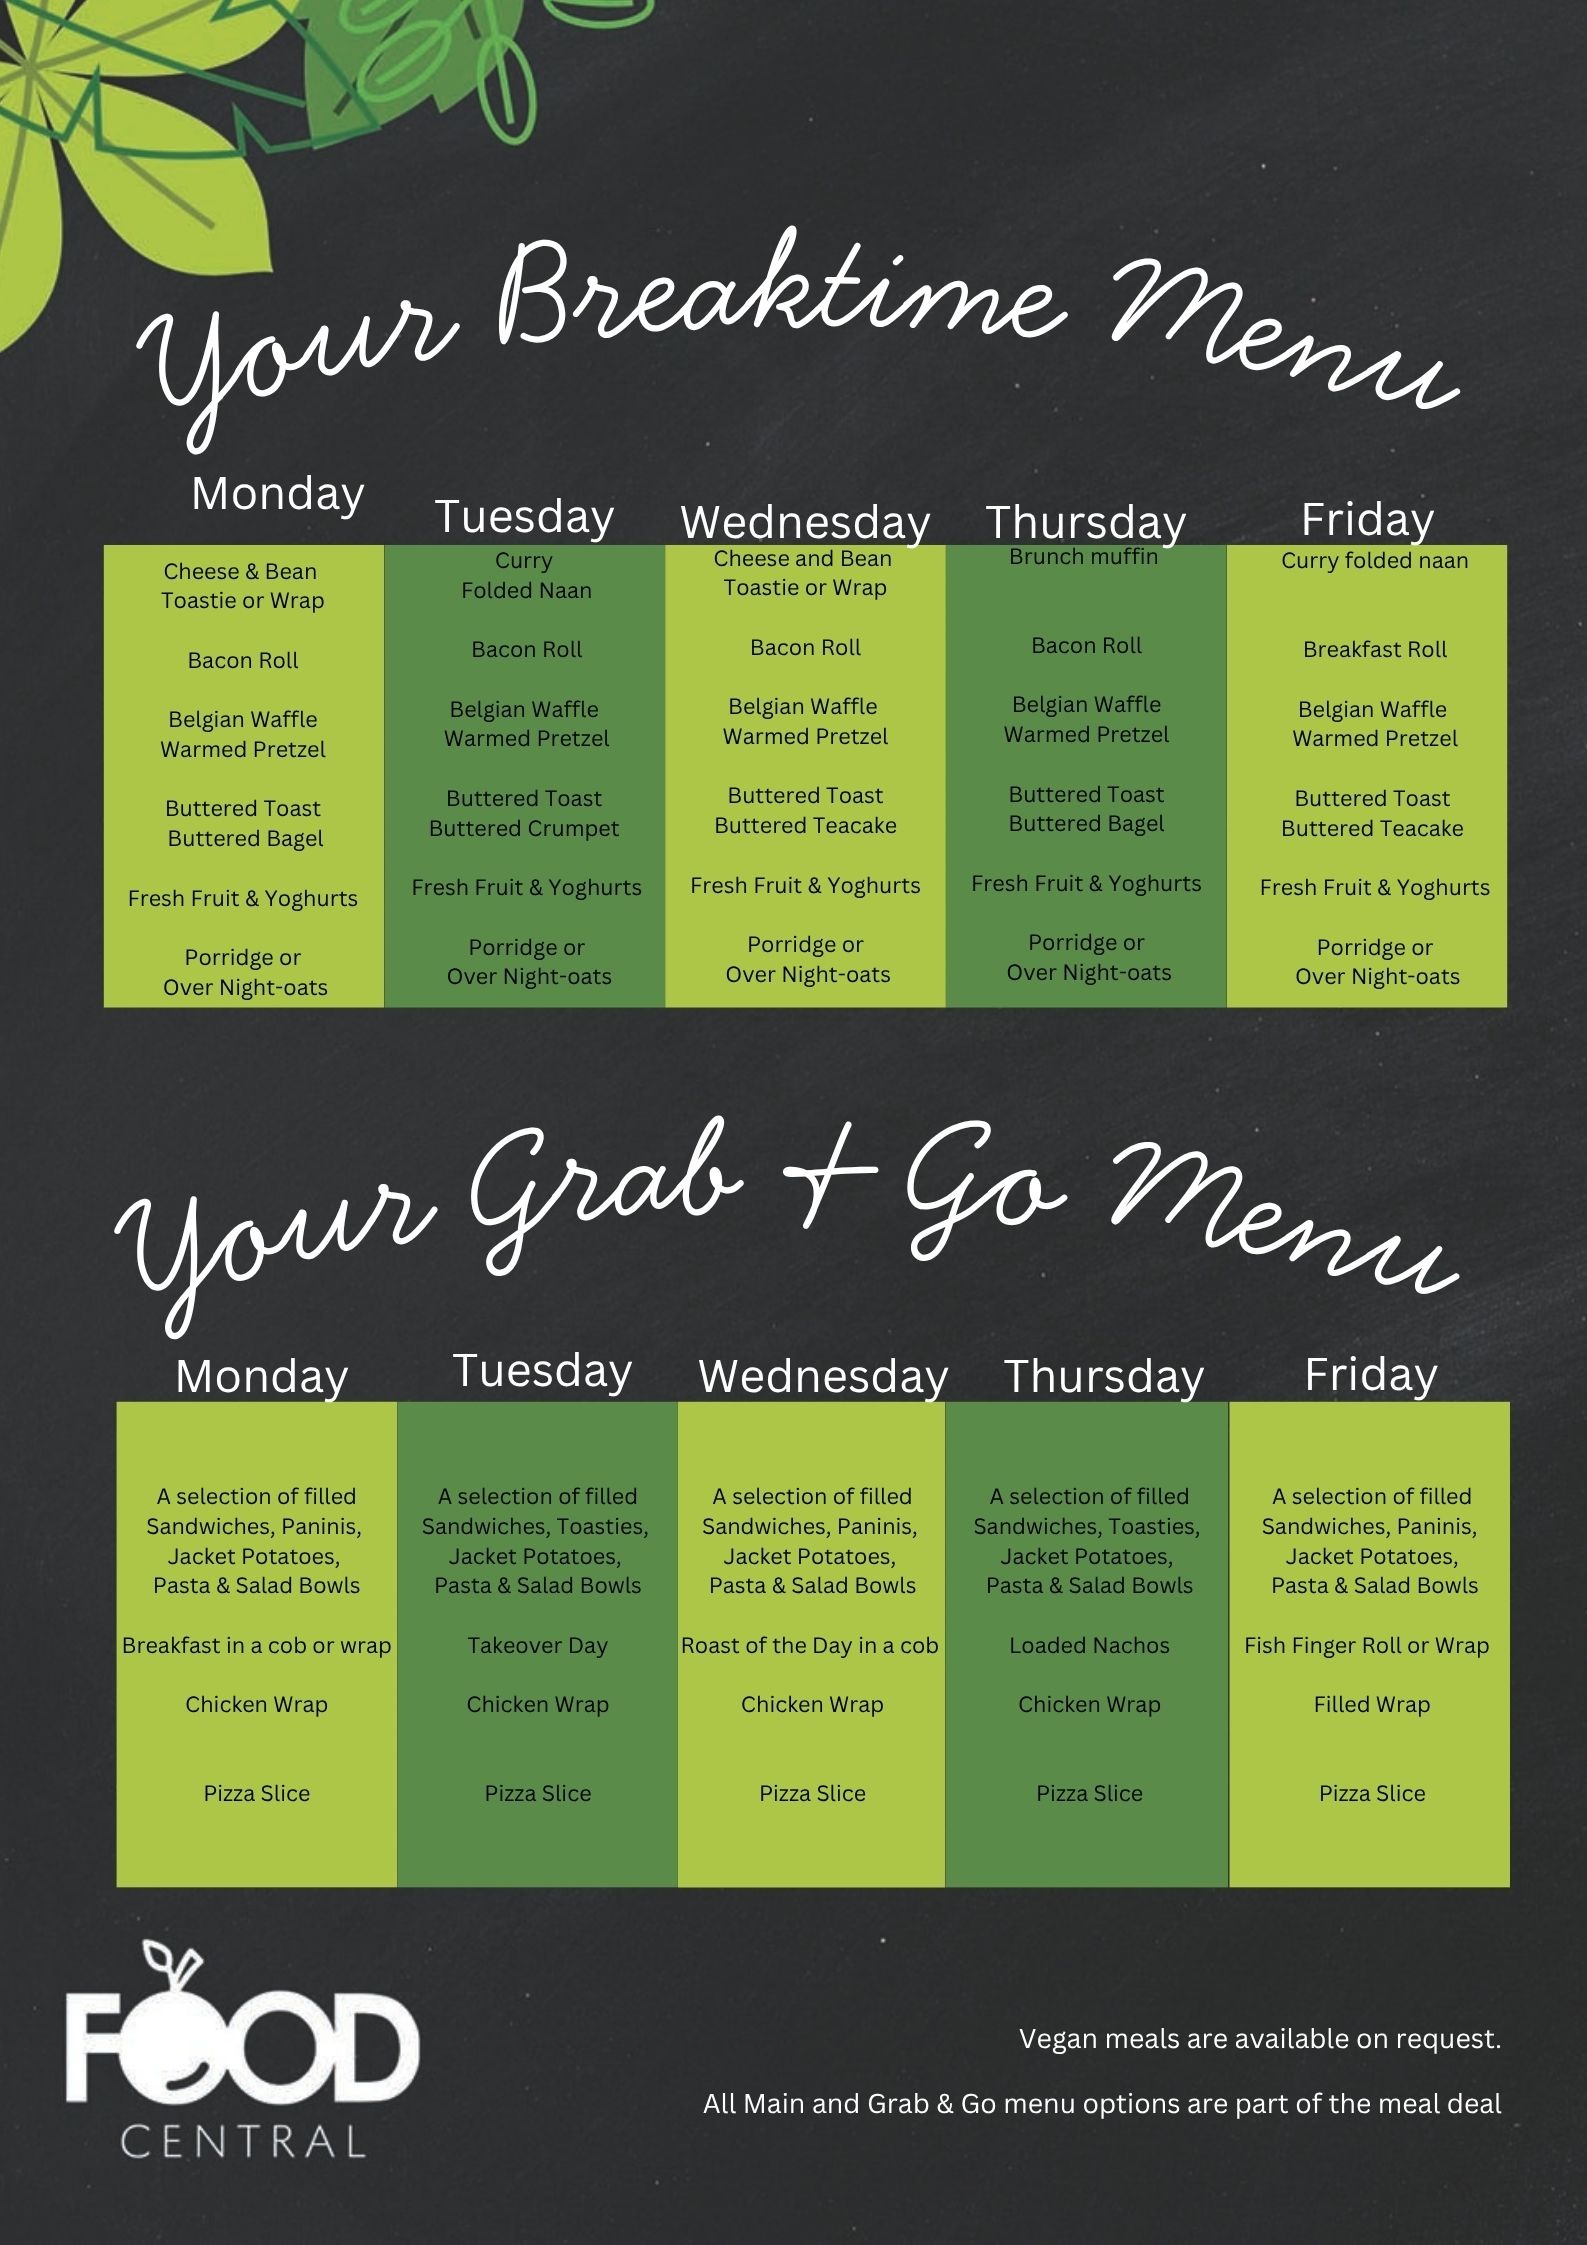 Your Breaktime Menu
Monday
Tuesday
Wednesday
Thursday
Friday
Cheese & Bean
Toastie or Wrap
Bacon Roll
Belgian Waffle
Warmed Pretzel
Buttered Toast
Buttered Bagel
Fresh Fruit & Yoghurts
Porridge or
Over Night-oats
Curry
Folded Naan
Bacon Roll
Belgian Waffle
Warmed Pretzel
Buttered Toast
Buttered Crumpet
Fresh Fruit & Yoghurts
Porridge or
Over Night-oats
Cheese and Bean
Toastie or Wrap
Bacon Roll
Belgian Waffle
Warmed Pretzel
Buttered Toast
Buttered Teacake
Fresh Fruit & Yoghurts
Porridge or
Over Night-oats
Brunch muffin
Bacon Roll
Belgian Waffle
Warmed Pretzel
Buttered Toast
Buttered Bagel
Fresh Fruit & Yoghurts
Porridge or
Over Night-oats
Curry folded naan
Breakfast Roll
Belgian Waffle
Warmed Pretzel
Buttered Toast
Buttered Teacake
Fresh Fruit & Yoghurts
Porridge or
Over Night-oats
Your Grab + Go Menu
Monday
Tuesday
Wednesday
Thursday
Friday
A selection of filled
Sandwiches, Paninis,
Jacket Potatoes,
Pasta & Salad Bowls
Breakfast in a cob or wrap
Chicken Wrap
Pizza Slice
A selection of filled
Sandwiches, Toasties,
Jacket Potatoes,
Pasta & Salad Bowls
Takeover Day
Chicken Wrap
Pizza Slice
A selection of filled
Sandwiches, Paninis,
Jacket Potatoes,
Pasta & Salad Bowls
Roast of the Day in a cob
Chicken Wrap
Pizza Slice
A selection of filled
Sandwiches, Toasties,
Jacket Potatoes,
Pasta & Salad Bowls
Loaded Nachos
Chicken Wrap
Pizza Slice
A selection of filled
Sandwiches, Paninis,
Jacket Potatoes,
Pasta & Salad Bowls
Fish Finger Roll or Wrap
Filled Wrap
Pizza Slice
FOOD
CENTRAL
Vegan meals are available on request.
All Main and Grab & Go menu options are part of the meal deal